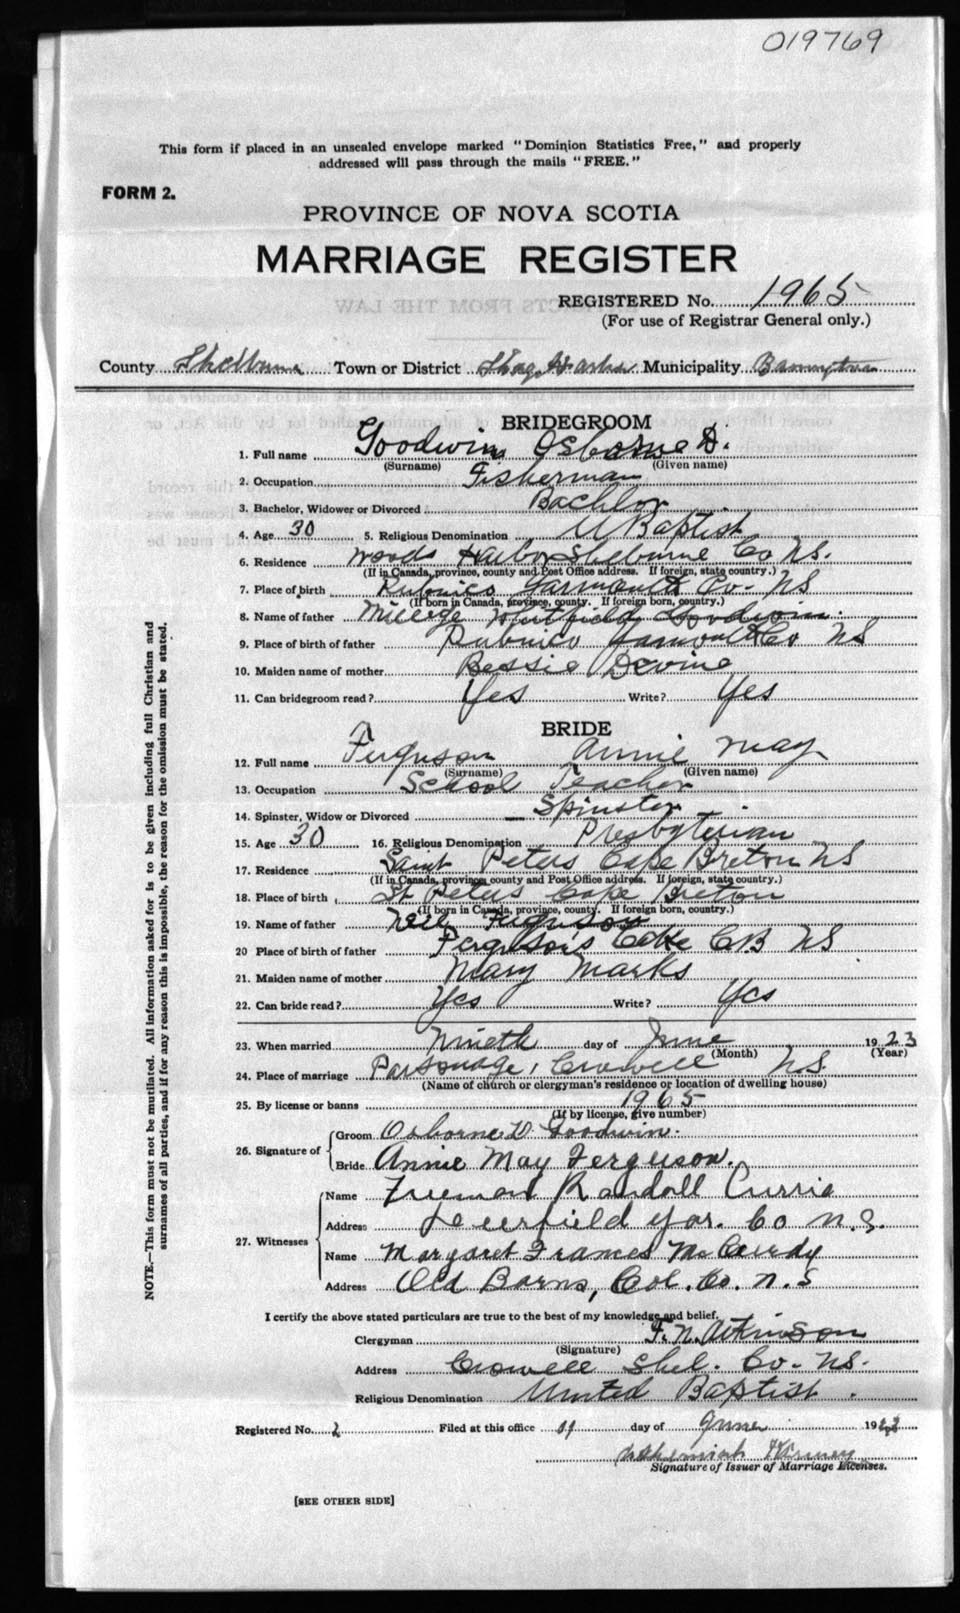 019769
This form if placed in an unsealed envelope marked "Dominion Statistics Free," and properly
addressed will pass through the mails "FREE."
FORM 2.
PROVINCE OF NOVA SCOTIA
MARRIAGE REGISTER
REGISTERED No. 1965
(For use of Registrar General only.)
County Shelburne Town or District Shag Harbor Municipality Barrington
BRIDEGROOM
1. Full name Goodwin Osborne D.
(Surname) (Given name)
2. Occupation Fisherman
3. Bachelor, Widower or Divorced Bachlor
4. Age 30 5. Religious Denomination U Baptist
6. Residence Woods Harbor Shelburne Co NS.
(If in Canada, province, county and Post Office address. If foreign, state country.)
7. Place of birth Pubnico Yarmouth Co. NS
(If born in Canada, province, county. If foreign born, country.)
8. Name of father Millege Whitfield Goodwin
9. Place of birth of father Pubnico Yarmouth Co NS
10. Maiden name of mother Bessie Devine
11. Can bridegroom read? Yes Write? Yes
BRIDE
12. Full name Ferguson Annie May
(Surname) (Given name)
13. Occupation School Teacher
14. Spinster, Widow or Divorced Spinster
15. Age 30 16. Religious Denomination Presbyterian
17. Residence Saint Peters Cape Breton NS
(If in Canada, province, county and Post Office address. If foreign, state country.)
18. Place of birth St Peters Cape Breton
(If born in Canada, province, county. If foreign born, country.)
19. Name of father Neil Ferguson
20 Place of birth of father Fergusons Lake CB NS
21. Maiden name of mother Mary Marks
22. Can bride read? Yes Write? Yes
23. When married Nineth day of June 1923
(Month) (Year)
24. Place of marriage Parsonage, Crowell NS.
(Name of church or clergyman's residence or location of dwelling house)
25. By license or banns 1965
(If by license, give number)
26. Signature of Groom Osborne D. Goodwin.
Bride Annie May Ferguson.
27. Witnesses Name Freeman Randall Currie
Address Deerfield Yar. Co N.S.
Name Margaret Frances McCurdy
Address Old Barns, Col. Co. N.S
I certify the above stated particulars are true to the best of my knowledge and belief.
Clergyman F. N. Atkinson
(Signature)
Address Crowell Shel. Co. NS.
Religious Denomination United Baptist.
Registered No. 2 Filed at this office day of June 1923
Nehemiah
Signature of Issuer of Marriage Licenses.
[SEE OTHER SIDE]
NOTE.—This form must not be mutilated. All information asked for is to be given including full Christian and
surnames of all parties, and if for any reason this is impossible, the reason for the omission must be stated.